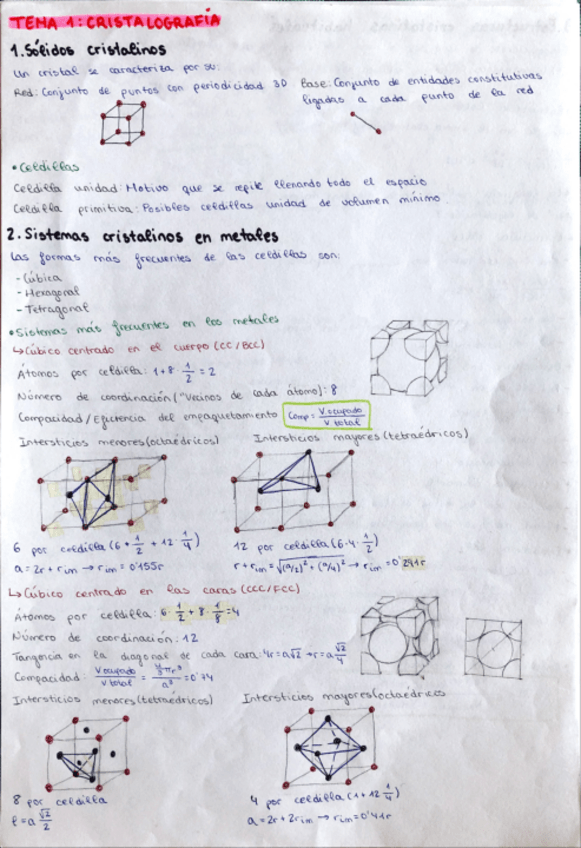 TEMA 1: CRISTALOGRAFÍA
1. Sólidos cristalinos
Un cristal se caracteriza por su:
Red: Conjunto de puntos con periodicidad 3D Base: Conjunto de entidades constitutivas
ligadas a cada punto de la red
• Celdillas
Celdilla unidad: Motivo que se repite llenando todo el espacio
Celdilla primitiva: Posibles celdillas unidad de volumen mínimo
2. Sistemas cristalinos en metales
Las formas más frecuentes de las celdillas son:
- Cúbica
- Hexagonal
- Tetragonal
• Sistemas más frecuentes en los metales
↳ Cúbico centrado en el cuerpo (CC/BCC)
Átomos por celdilla: 1+8·1/2=2
Número de coordinación ("Vecinos de cada átomo): 8
Compacidad/Eficiencia del empaquetamiento Comp = V ocupado / V total
Intersticios menores (octaédricos) Intersticios mayores (tetraédricos)
6 por celdilla (6·1/2 + 12·1/4) 12 por celdilla (6·4·1/2)
a = 2r + rim → rim = 0'155r r + rim = √(a/2)² + (a/4)² → rim = 0'291r
↳ Cúbico centrado en las caras (CCC/FCC)
Átomos por celdilla: 6·1/2 + 8·1/8 = 4
Número de coordinación: 12
Tangencia en la diagonal de cada cara: 4r = a√2 → r = a√2/4
Compacidad: V ocupado / V total = 4/3πr³ / a³ = 0'74
Intersticios menores (tetraédricos) Intersticios mayores (octaédricos
8 por celdilla 4 por celdilla (1+12·1/4)
l = a√2/2 a = 2r + 2rim → rim = 0'41r